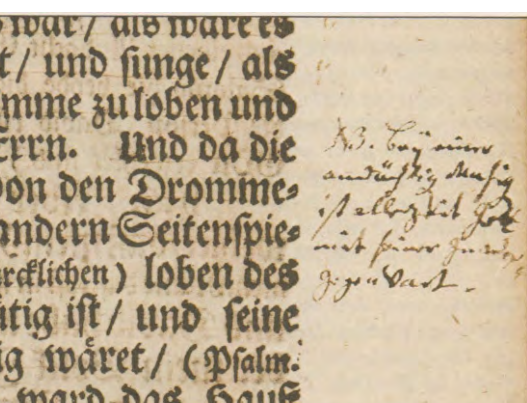 war / als wäre es
t / und sunge / als
mme zu loben und
Errn. Und da die
von den Dromme=
andern Seitenspie=
rcklichen) loben des
ütig ist / und seine
ig wäret / (Psalm.
ward das Hauß
NB. Bey einer
andächtig Musiq
ist allezeit Gott
mit seiner Gnaden
Gegenwart.